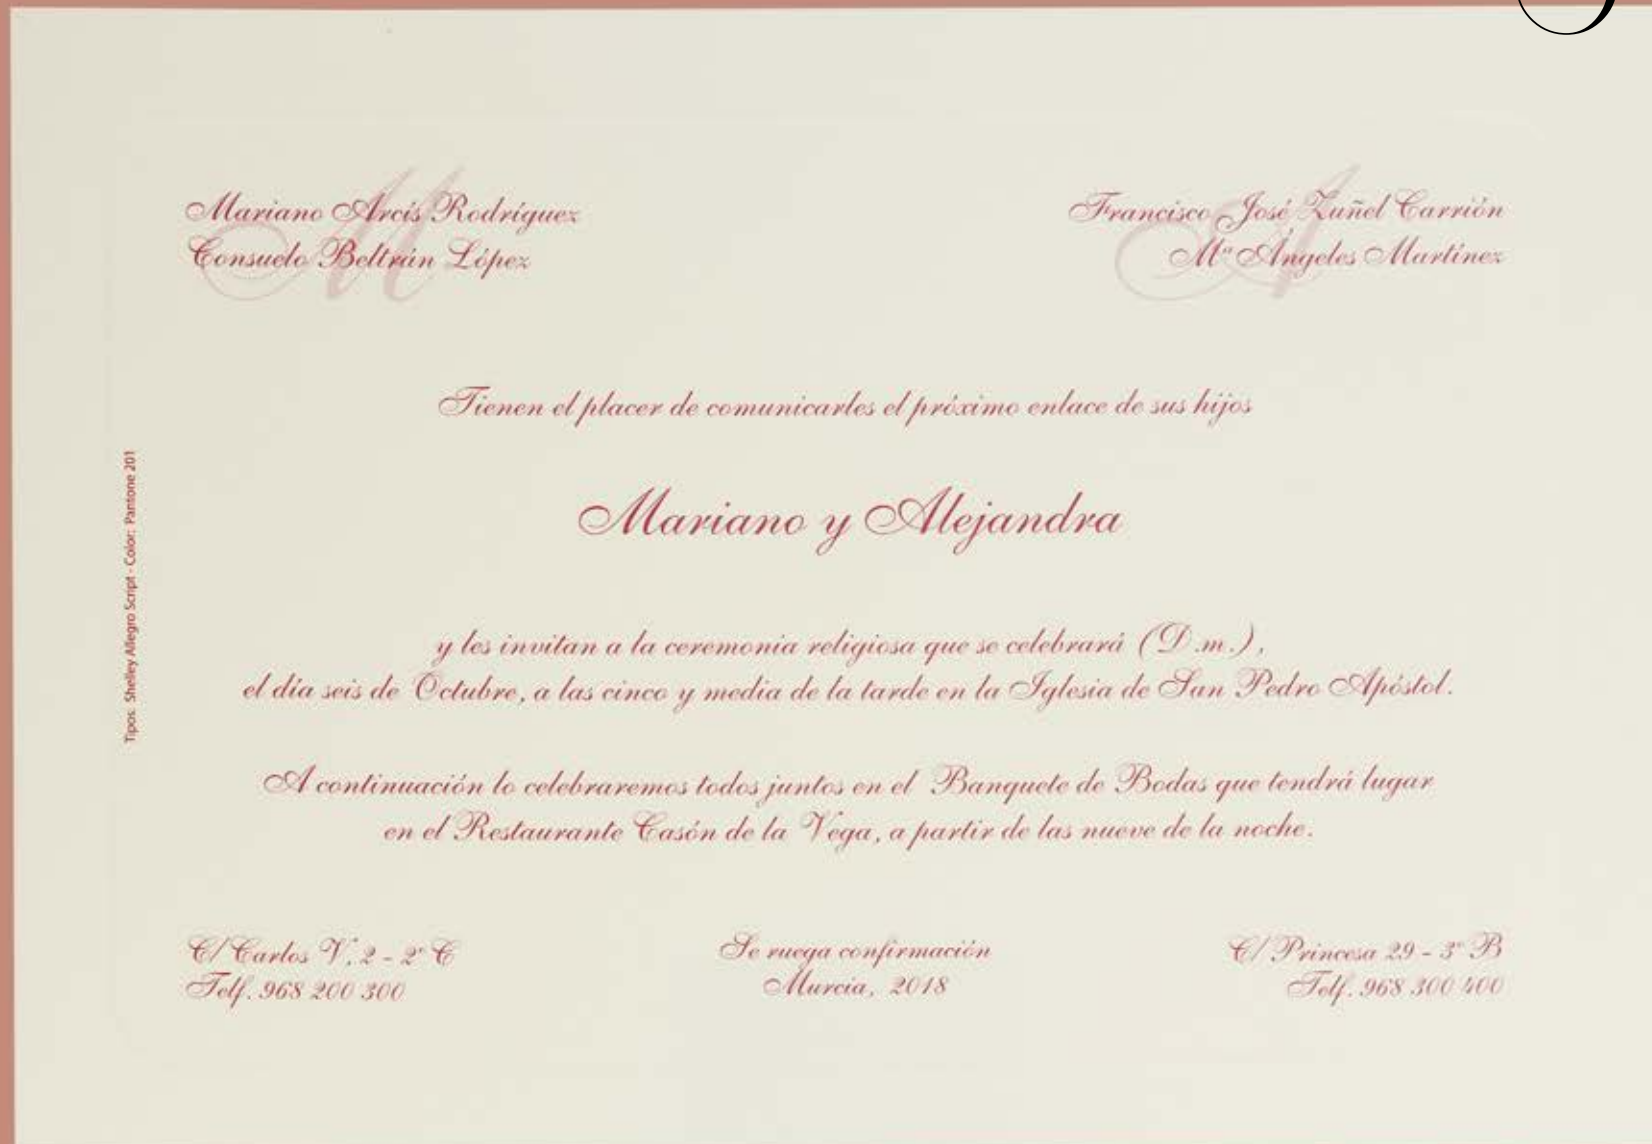 Mariano Arcís Rodríguez
Consuelo Beltrán López
Francisco José Zuñel Carrión
Mª Ángeles Martínez
Tienen el placer de comunicarles el próximo enlace de sus hijos
Mariano y Alejandra
y les invitan a la ceremonia religiosa que se celebrará (D.m.),
el día seis de Octubre, a las cinco y media de la tarde en la Iglesia de San Pedro Apóstol.
A continuación lo celebraremos todos juntos en el Banquete de Bodas que tendrá lugar
en el Restaurante Casón de la Vega, a partir de las nueve de la noche.
C/ Carlos V, 2 - 2º C
Telf. 968 200 300
Se ruega confirmación
Murcia, 2018
C/ Princesa 29 - 3º B
Telf. 968 300 400
Tipos: Shelley Allegro Script - Color: Pantone 201
M
A